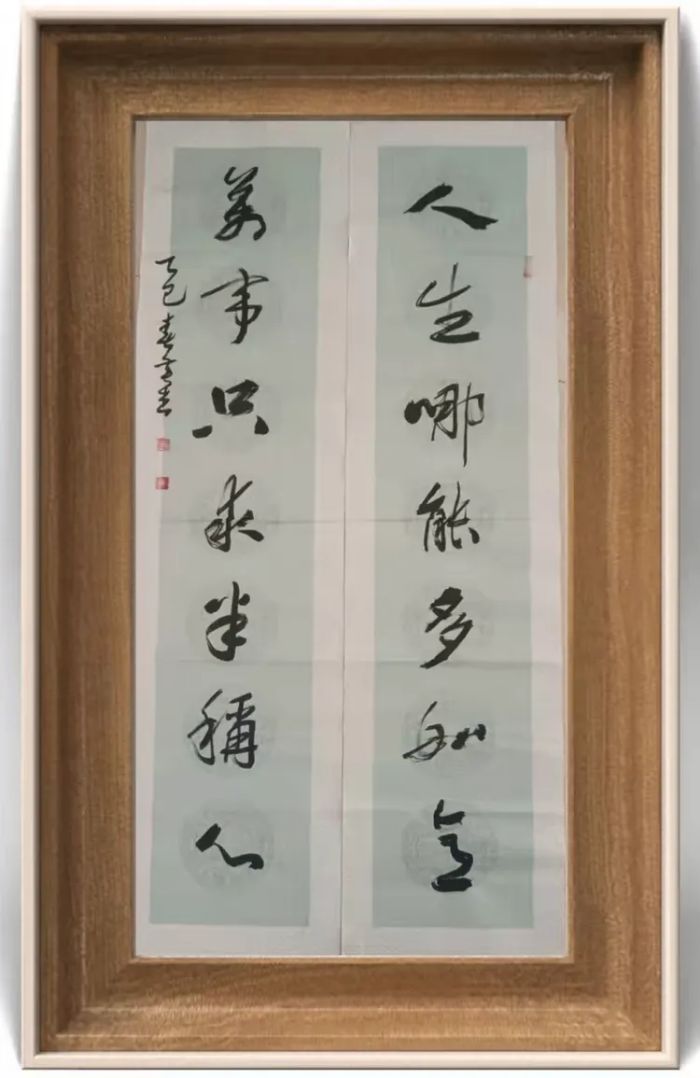 人生哪能多如意
萬事只求半稱心
乙巳春